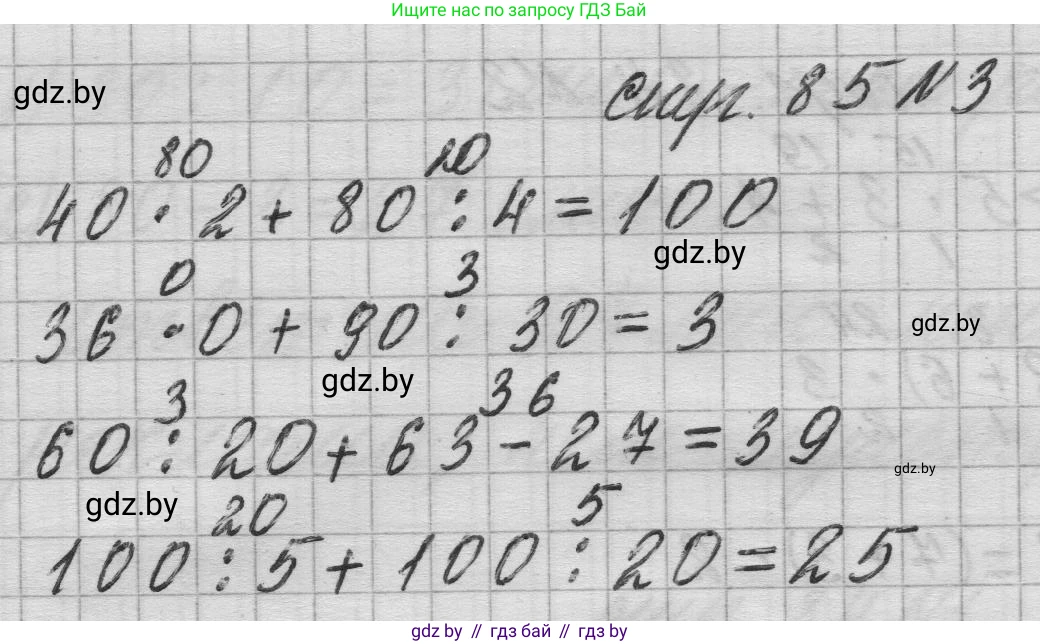 Ищите нас по запросу ГДЗ Бай
gdz.by
стр. 85 N 3
80 20
40 · 2 + 80 : 4 = 100
gdz.by
0 3
36 · 0 + 90 : 30 = 3
gdz.by
gdz.by
3 36
60 : 20 + 63 - 27 = 39
gdz.by
gdz.by
20 5
100 : 5 + 100 : 20 = 25
gdz.by // гдз бай // гдз by